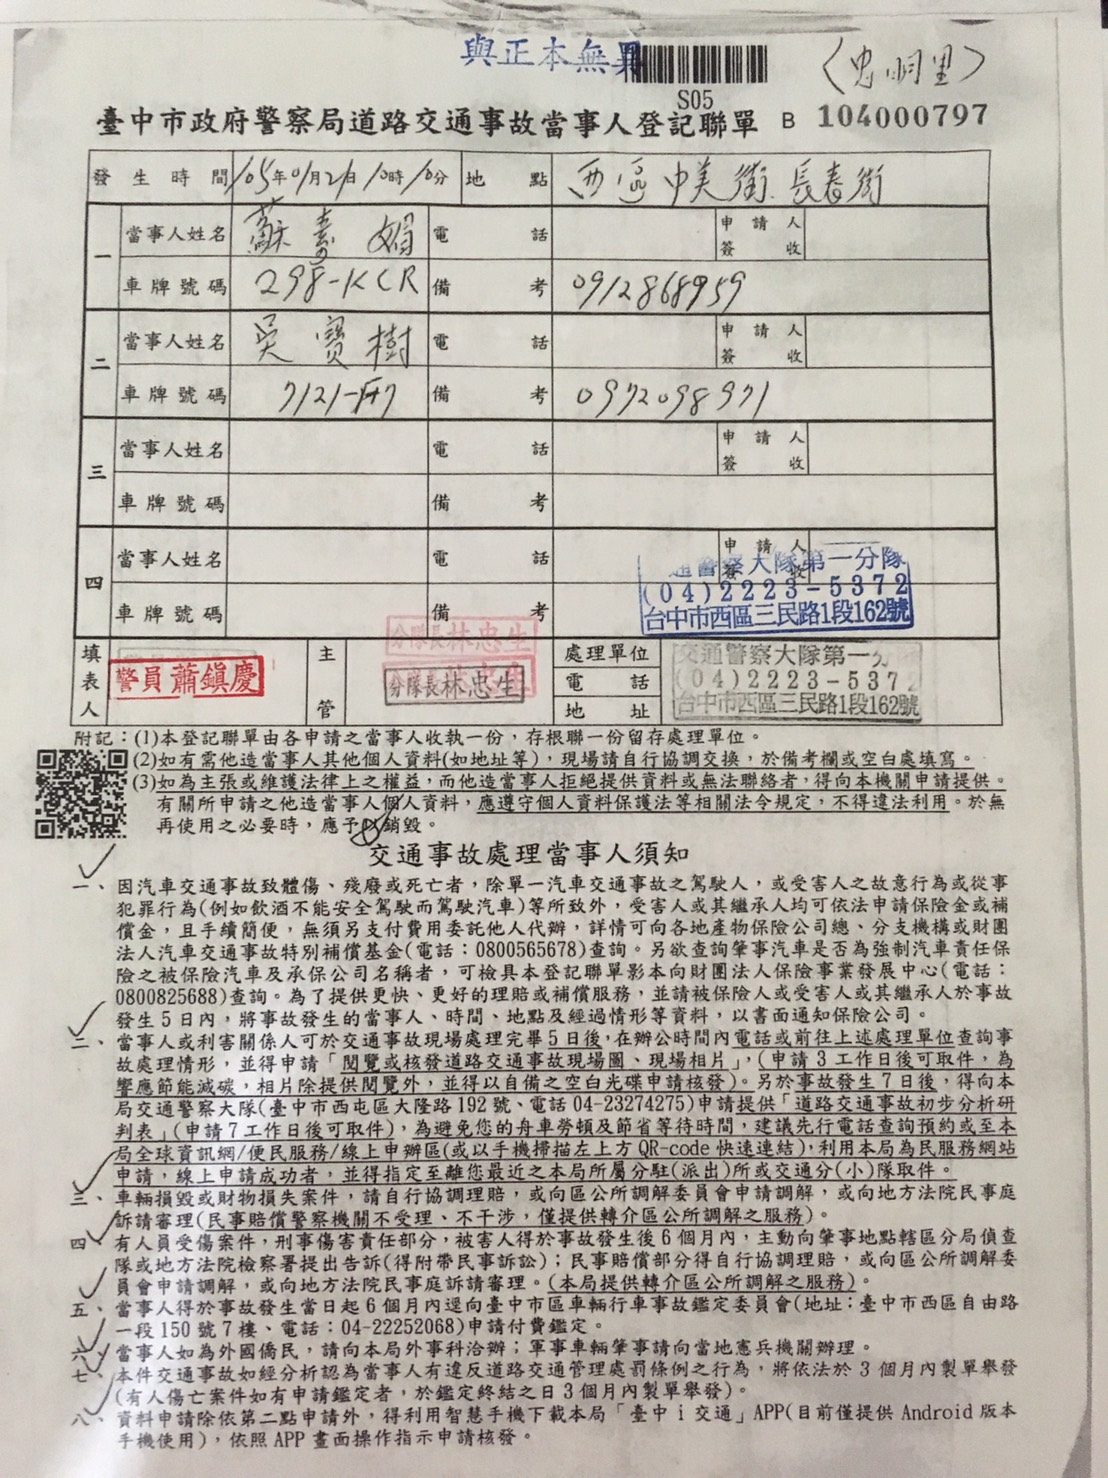 與正本無異
S05
(忠明里)
臺中市政府警察局道路交通事故當事人登記聯單 B 104000797
發生時間 105年01月21日10時10分 地點 西區中美街.長春街
一 當事人姓名 蘇素娟 電話 申請人簽收
車牌號碼 298-KCR 備考 0912868959
二 當事人姓名 吳寶樹 電話 申請人簽收
車牌號碼 7121-H7 備考 0972098971
三 當事人姓名 電話 申請人簽收
車牌號碼 備考
四 當事人姓名 電話 申請人簽收
車牌號碼 備考
通警察大隊第一分隊
(04)2223-5372
台中市西區三民路1段162號
填表人 警員蕭鎮慶 主管 分隊長林忠生
分隊長林忠生
處理單位 交通警察大隊第一分
電話 (04)2223-5372
地址 台中市西區三民路1段162號
附記:(1)本登記聯單由各申請之當事人收執一份,存根聯一份留存處理單位。
(2)如有需他造當事人其他個人資料(如地址等),現場請自行協調交換,於備考欄或空白處填寫。
(3)如為主張或維護法律上之權益,而他造當事人拒絕提供資料或無法聯絡者,得向本機關申請提供。
有關所申請之他造當事人個人資料,應遵守個人資料保護法等相關法令規定,不得違法利用。於無
再使用之必要時,應予以銷毀。
交通事故處理當事人須知
一、因汽車交通事故致體傷、殘廢或死亡者,除單一汽車交通事故之駕駛人,或受害人之故意行為或從事
犯罪行為(例如飲酒不能安全駕駛而駕駛汽車)等所致外,受害人或其繼承人均可依法申請保險金或補
償金,且手續簡便,無須另支付費用委託他人代辦,詳情可向各地產物保險公司總、分支機構或財團
法人汽車交通事故特別補償基金(電話:0800565678)查詢。另欲查詢肇事汽車是否為強制汽車責任保
險之被保險汽車及承保公司名稱者,可檢具本登記聯單影本向財團法人保險事業發展中心(電話:
0800825688)查詢。為了提供更快、更好的理賠或補償服務,並請被保險人或受害人或其繼承人於事故
發生5日內,將事故發生的當事人、時間、地點及經過情形等資料,以書面通知保險公司。
二、當事人或利害關係人可於交通事故現場處理完畢5日後,在辦公時間內電話或前往上述處理單位查詢事
故處理情形,並得申請「閱覽或核發道路交通事故現場圖、現場相片」,(申請3工作日後可取件,為
響應節能減碳,相片除提供閱覽外,並得以自備之空白光碟申請核發)。另於事故發生7日後,得向本
局交通警察大隊(臺中市西屯區大隆路192號、電話04-23274275)申請提供「道路交通事故初步分析研
判表」(申請7工作日後可取件),為避免您的舟車勞頓及節省等待時間,建議先行電話查詢預約或至本
局全球資訊網/便民服務/線上申辦區(或以手機掃描左上方QR-code快速連結),利用本局為民服務網站
申請,線上申請成功者,並得指定至離您最近之本局所屬分駐(派出)所或交通分(小)隊取件。
三、車輛損毀或財物損失案件,請自行協調理賠,或向區公所調解委員會申請調解,或向地方法院民事庭
訴請審理(民事賠償警察機關不受理、不干涉,僅提供轉介區公所調解之服務)。
四、有人員受傷案件,刑事傷害責任部分,被害人得於事故發生後6個月內,主動向肇事地點轄區分局偵查
隊或地方法院檢察署提出告訴(得附帶民事訴訟);民事賠償部分得自行協調理賠,或向區公所調解委
員會申請調解,或向地方法院民事庭訴請審理。(本局提供轉介區公所調解之服務)。
五、當事人得於事故發生當日起6個月內逕向臺中市區車輛行車事故鑑定委員會(地址:臺中市西區自由路
一段150號7樓、電話:04-22252068)申請付費鑑定。
六、當事人如為外國僑民,請向本局外事科洽辦;軍事車輛肇事請向當地憲兵機關辦理。
七、本件交通事故如經分析認為當事人有違反道路交通管理處罰條例之行為,將依法於3個月內製單舉發
(有人傷亡案件如有申請鑑定者,於鑑定終結之日3個月內製單舉發)。
八、資料申請除依第二點申請外,得利用智慧手機下載本局「臺中i交通」APP(目前僅提供Android版本
手機使用),依照APP畫面操作指示申請核發。